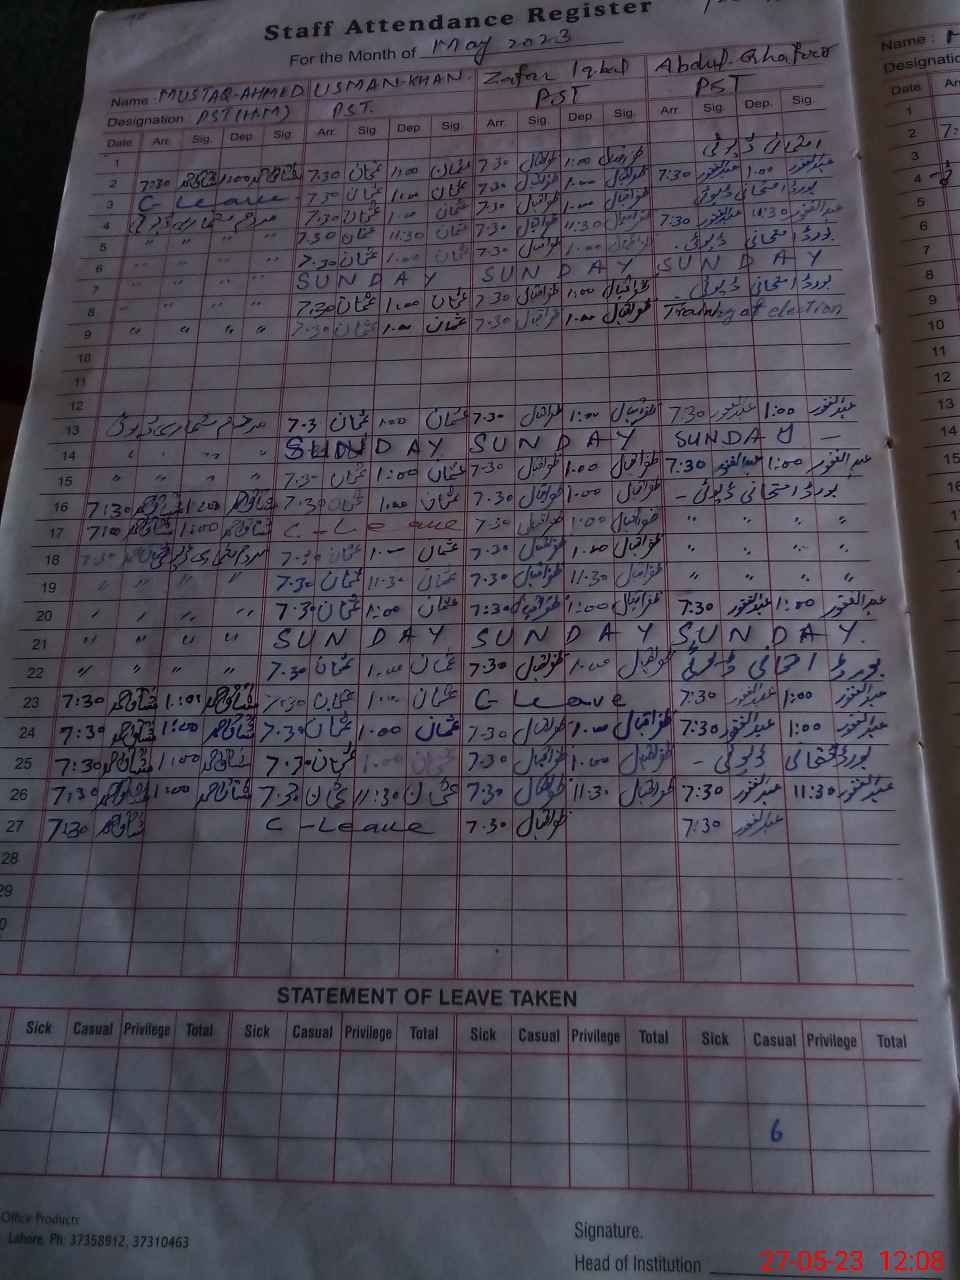 Staff Attendance Register
For the Month of May 2023
Name : MUSTAQ-AHMED USMAN-KHAN. Zafar Iqbal Abdul.Ghafoor
Designation PST(H.M) PST. PST PST
Date Arr. Sig. Dep. Sig. Arr. Sig. Dep. Sig. Arr. Sig. Dep. Sig. Arr. Sig. Dep. Sig.
1
2 7:30 1:00 7.30 عثمان 1:00 عثمان 7.30 ظفر اقبال 1:00 ظفر اقبال 7:30 عبدالغفور 1.00 عبدالغفور
3 C Leave 7.30 عثمان 1:00 عثمان 7.30 ظفر اقبال 1.00 ظفر اقبال بورڈ امتحانی ڈیوٹی
4 7.30 عثمان 1.00 عثمان 7.30 ظفر اقبال 1.00 ظفر اقبال
5 " " " " 7.30 عثمان 11:30 عثمان 7.30 ظفر اقبال 11:30 ظفر اقبال 7:30 عبدالغفور 11:30 عبدالغفور
6 " " " " 7.30 عثمان 1:00 عثمان 7.30 ظفر اقبال 1:00 ظفر اقبال بورڈ امتحانی ڈیوٹی
7 " " " " SUNDAY SUNDAY SUNDAY
8 " " " 7.30 عثمان 1:00 عثمان 7.30 ظفر اقبال 1:00 ظفر اقبال بورڈ امتحانی ڈیوٹی
9 " " " " 7.30 عثمان 1.00 عثمان 7.30 ظفر اقبال 1.00 ظفر اقبال Training of election
10
11
12
13 مردم شماری ڈیوٹی 7.3 عثمان 1:00 عثمان 7.30 ظفر اقبال 1:00 ظفر اقبال 7:30 عبدالغفور 1:00 عبدالغفور
14 " " " " SUNDAY SUNDAY SUNDAY —
15 " " " " 7.30 عثمان 1:00 عثمان 7.30 ظفر اقبال 1:00 ظفر اقبال 7:30 عبدالغفور 1:00 عبدالغفور
16 7:30 1:00 7.30 عثمان 1.00 عثمان 7.30 ظفر اقبال 1.00 ظفر اقبال بورڈ امتحانی ڈیوٹی -
17 7:00 1:00 C-Leave 7.30 ظفر اقبال 1:00 ظفر اقبال " " " "
18 7:30 7.30 عثمان 1.00 عثمان 7.30 ظفر اقبال 1.00 ظفر اقبال " " " "
19 " " " " 7.30 عثمان 11:30 عثمان 7.30 ظفر اقبال 11.30 ظفر اقبال " " " "
20 " " " " 7.30 عثمان 1:00 عثمان 7:30 ظفر اقبال 1:00 ظفر اقبال 7:30 عبدالغفور 1:00 عبدالغفور
21 " " " " SUNDAY SUNDAY SUNDAY.
22 " " " " 7.30 عثمان 1.00 عثمان 7.30 ظفر اقبال 1.00 ظفر اقبال بورڈ امتحانی ڈیوٹی
23 7:30 1:00 7:30 عثمان 1.00 عثمان C Leave 7:30 عبدالغفور 1:00 عبدالغفور
24 7:30 1:00 7.30 عثمان 1.00 عثمان 7.30 ظفر اقبال 1.00 ظفر اقبال 7:30 عبدالغفور 1:00 عبدالغفور
25 7:30 1:00 7.30 عثمان 1:00 عثمان 7.30 ظفر اقبال 1.00 ظفر اقبال بورڈ امتحانی ڈیوٹی -
26 7:30 1:00 7.30 عثمان 11:30 عثمان 7.30 ظفر اقبال 11.30 ظفر اقبال 7:30 عبدالغفور 11:30 عبدالغفور
27 7:30 C-Leave 7.30 ظفر اقبال 7:30 عبدالغفور
28
29
0
STATEMENT OF LEAVE TAKEN
Sick Casual Privilege Total Sick Casual Privilege Total Sick Casual Privilege Total Sick Casual Privilege Total
6
Office Products
Lahore. Ph: 37358912, 37310463
Signature.
Head of Institution
27-05-23 12:08
Name :
Designation
Date
1
2 7:
3
4
5
6
7
8
9
10
11
12
13
14
15
16
17
18